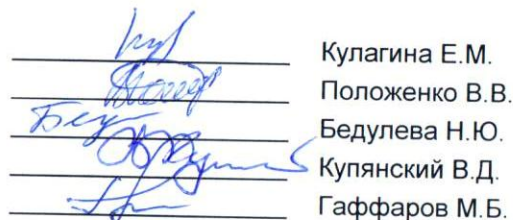 Кулагина Е.М.
Положенко В.В.
Бедулева Н.Ю.
Купянский В.Д.
Гаффаров М.Б.